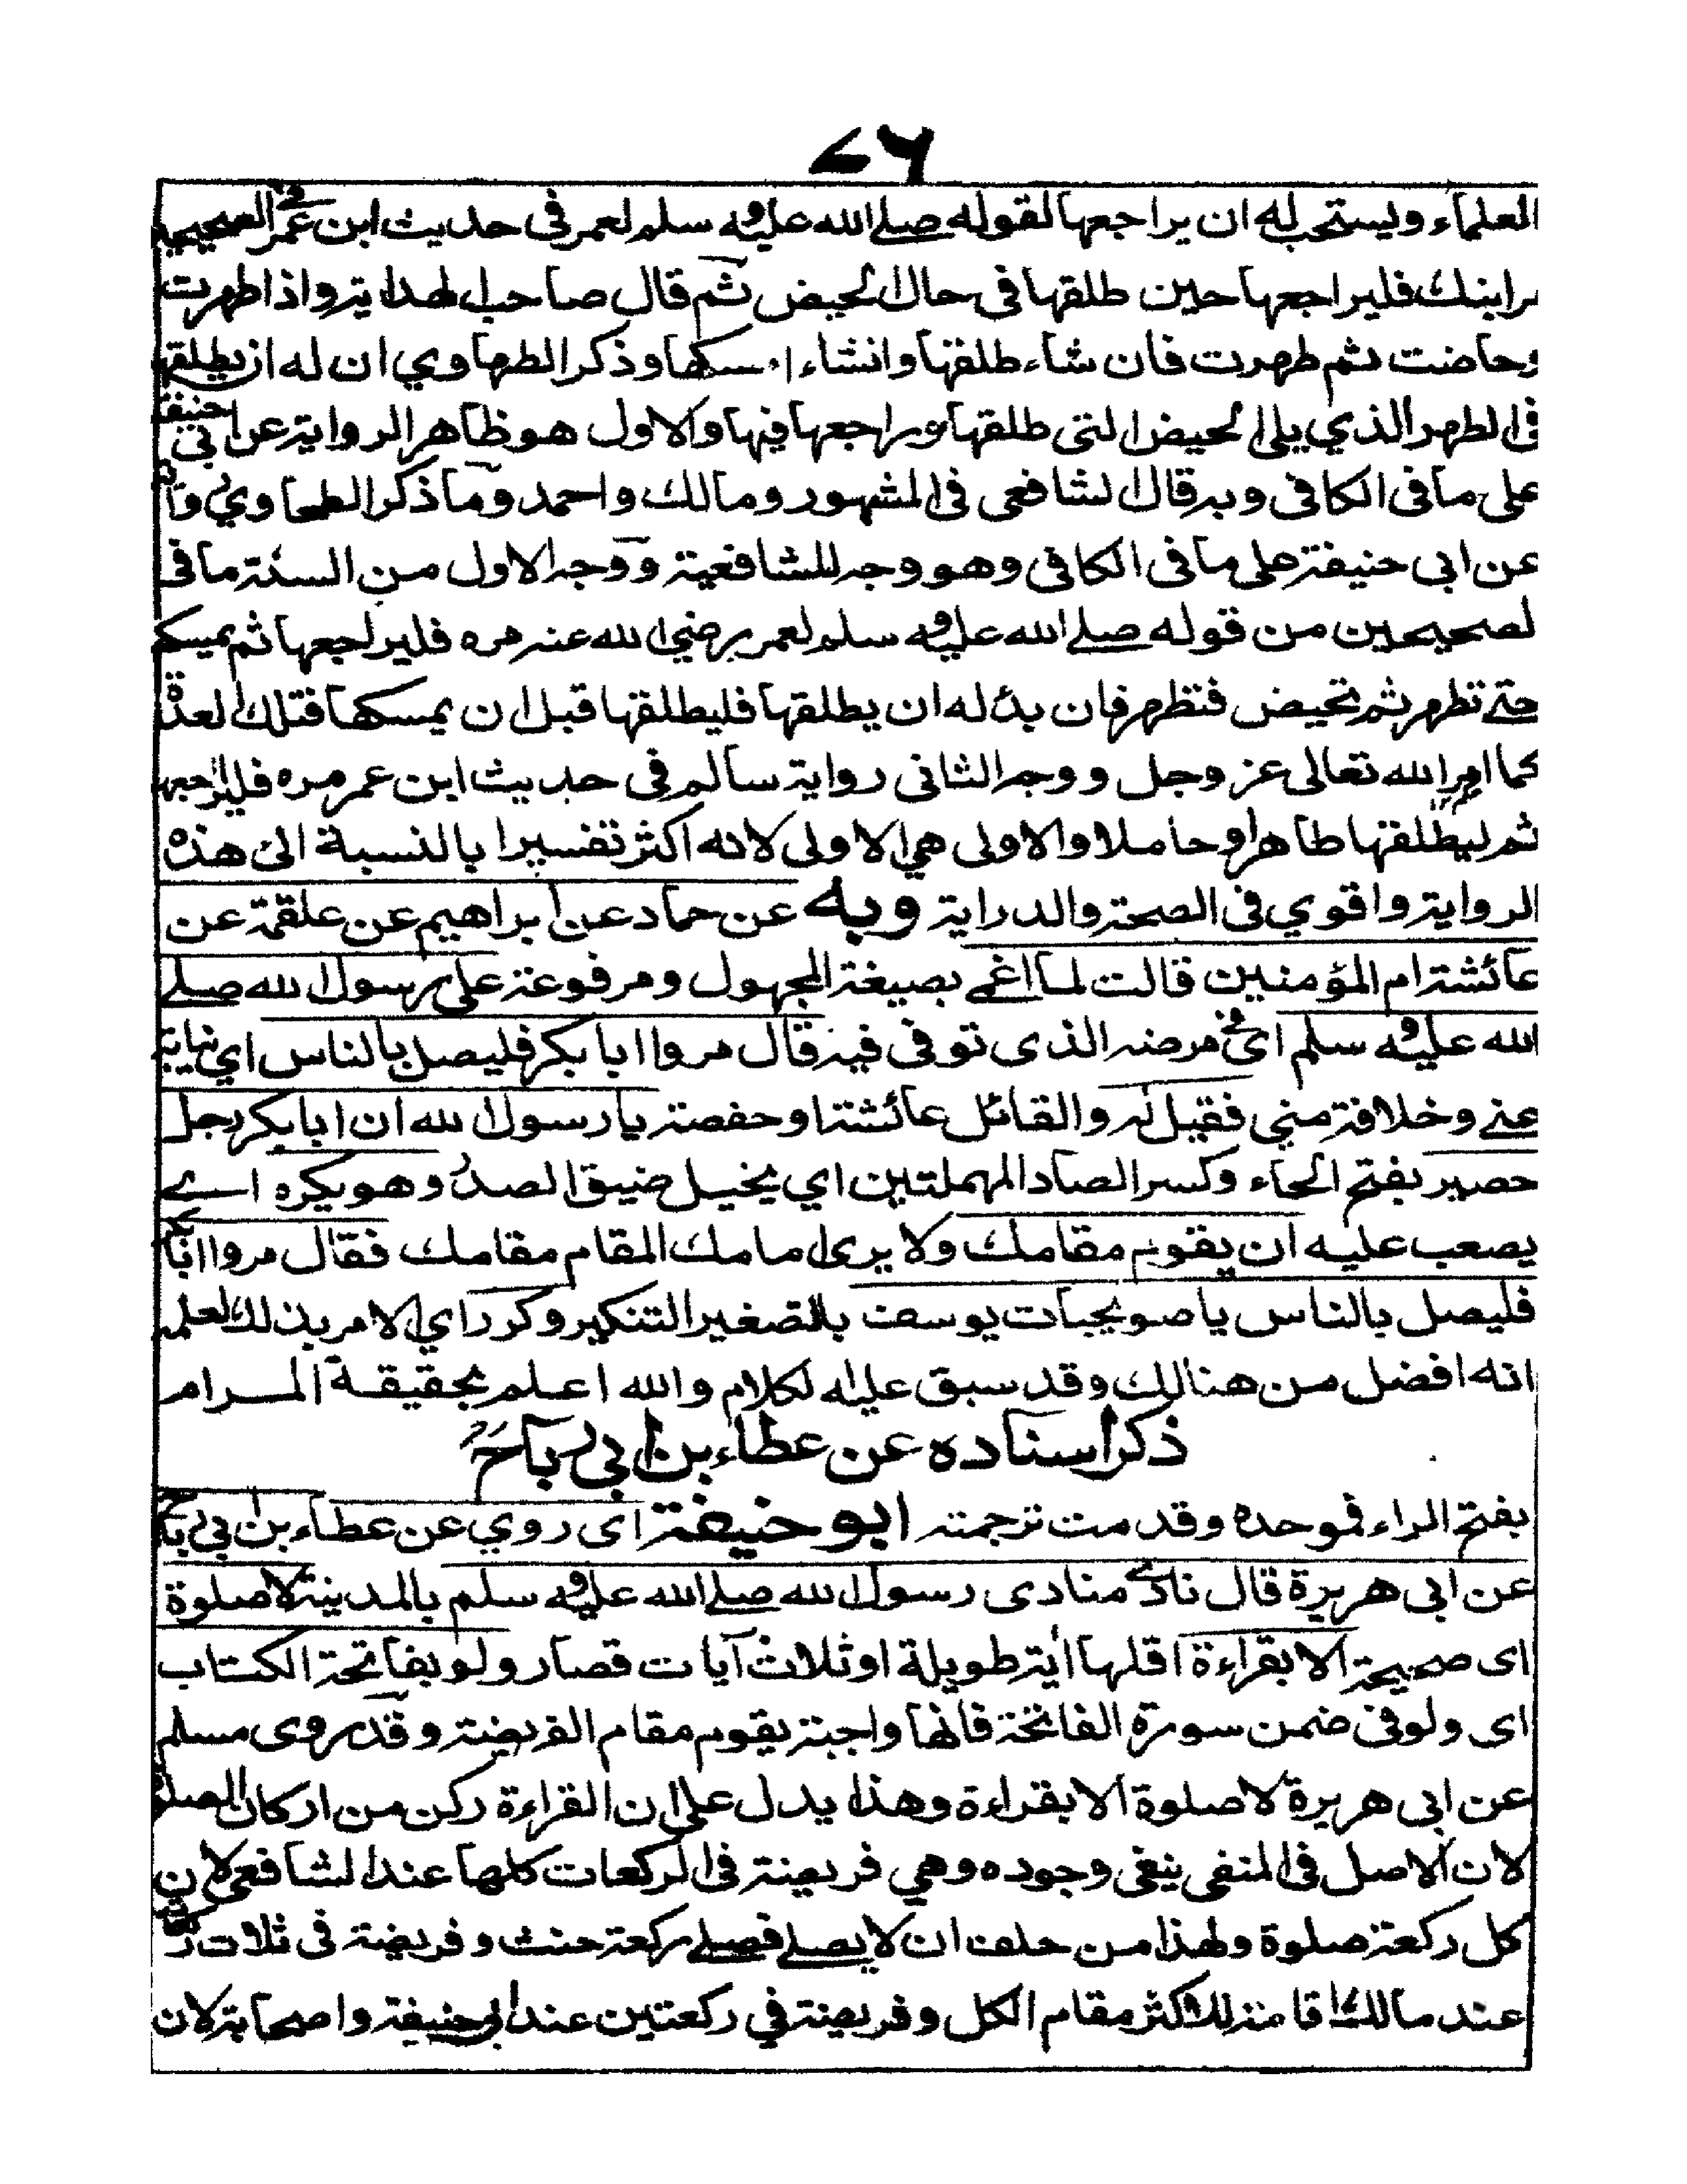 ٧٦
العلماء ويستحب له ان يراجعها لقوله صلى الله عليه وسلم لعمر فى حديث ابن عمر فى الصحيحين
مر ابنك فليراجعها حين طلقها فى حال الحيض ثم قال صاحب الهداية واذا طهرت
وحاضت ثم طهرت فان شاء طلقها وانشاء امسكها وذكر الطحاوي ان له ان يطلقها
فى الطهر الذي يلى الحيض التى طلقها وراجعها فيها والاول هو ظاهر الرواية عن ابى حنيفة
على ما فى الكافى وبه قال الشافعى فى المشهور ومالك واحمد وما ذكر الطحاوي
عن ابى حنيفة على ما فى الكافى وهو وجه للشافعية ووجه الاول من السنة ما فى
لصحيحين من قوله صلى الله عليه وسلم لعمر رضي الله عنه مره فليراجعها ثم يمسكها
حتى تطهر ثم تحيض فتطهر فان بدٔ له ان يطلقها فليطلقها قبل ان يمسكها فتلك العدة
كما امر الله تعالى عز وجل ووجه الثانى رواية سالم فى حديث ابن عمر مره فليراجعها
ثم ليطلقها طاهرا وحاملا والاولى هي الاولى لانه اكثر تفسيرا بالنسبة الى هذه
الرواية واقوي فى الصحة والدراية وبه عن حماد عن ابراهيم عن علقمة عن
عائشة ام المؤمنين قالت لما اغمى بصيغة المجهول ومرفوعة على رسول الله صلى
الله عليه وسلم اى فى مرضه الذى توفى فيه قال مروا ابا بكر فليصل بالناس اي نيابة
عنى وخلافة مني فقيل له والقائل عائشة او حفصة يا رسول الله ان ابا بكر رجل
حصير بفتح الحاء وكسر الصاد المهملتين اي يخيل ضيق الصدر وهو يكره اى
يصعب عليه ان يقوم مقامك ولا يرى امامك المقام مقامك فقال مروا ابا بكر
فليصل بالناس يا صويحبات يوسف بالتصغير التنكير وكرر اي الامر بذلك لعلمه
انه افضل من هنالك وقد سبق عليه لكلام والله اعلم بحقيقة المرام
ذكر اسناده عن عطاء بن ابي رباح
بفتح الراء فموحدة وقد مت ترجمته ابو حنيفة اى روي عن عطاء بن ابي رباح
عن ابى هريرة قال نادى منادى رسول الله صلى الله عليه وسلم بالمدينة لا صلوة
اى صحيحة الا بقراءة اقلها اية طويلة او ثلاث آيات قصار ولو بفاتحة الكتاب
اى ولو فى ضمن سورة الفاتحة فانها واجبة يقوم مقام الفريضة وقد روى مسلم
عن ابى هريرة لا صلوة الا بقراءة وهذا يدل على ان القراءة ركن من اركان الصلوة
لان الاصل فى المنفى ينغى وجوده وهي فريضة فى الركعات كلها عند الشافعي لان
كل ركعة صلوة ولهذا من حلف ان لا يصلى فصلى ركعة حنث وفريضة فى ثلاث
عند مالك اقامة للاكثر مقام الكل وفريضة في ركعتين عند ابى حنيفة واصحابه لان